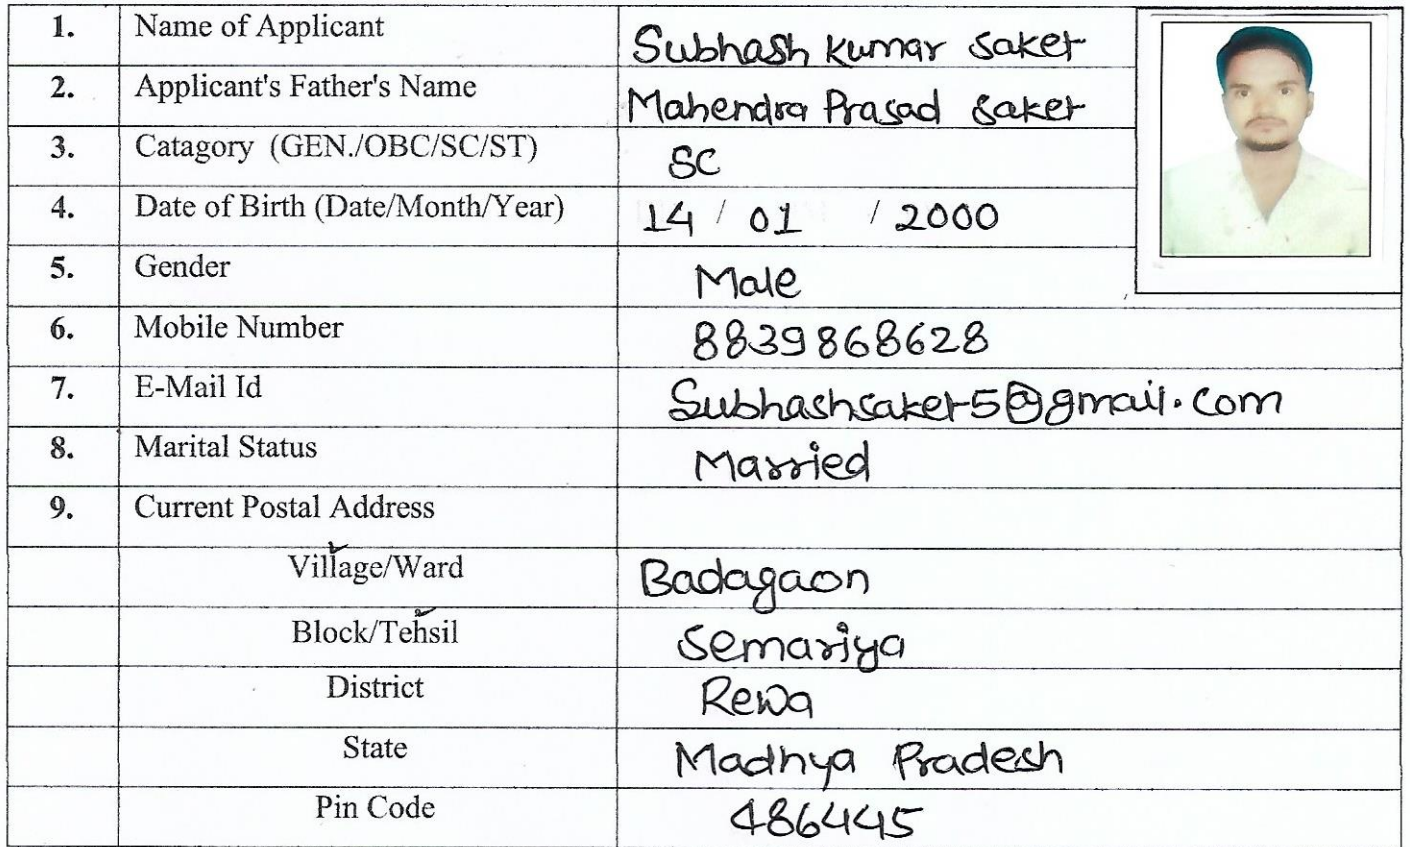 1. Name of Applicant Subhash Kumar Saket
2. Applicant's Father's Name Mahendra Prasad Saket
3. Catagory (GEN./OBC/SC/ST) SC
4. Date of Birth (Date/Month/Year) 14 / 01 / 2000
5. Gender Male
6. Mobile Number 8839868628
7. E-Mail Id Subhashsaket5@gmail.com
8. Marital Status Married
9. Current Postal Address
Village/Ward Badagaon
Block/Tehsil Semariya
District Rewa
State Madhya Pradesh
Pin Code 486445